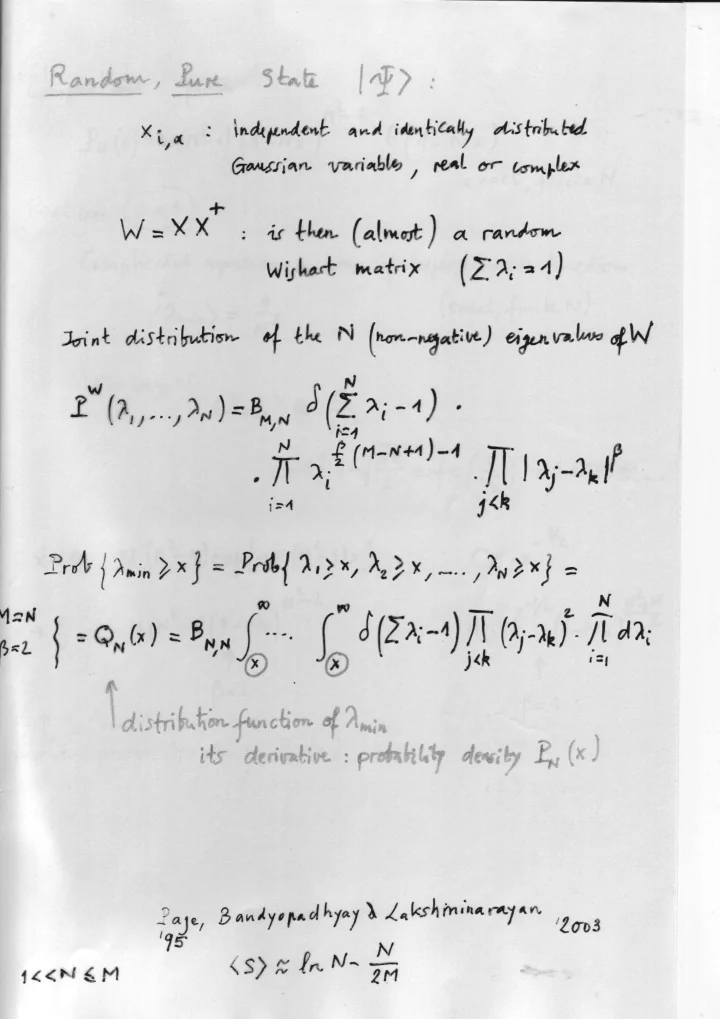 Random, Pure State |Ψ⟩ :
x_{i,α} : independent and identically distributed
Gaussian variables, real or complex
W = X X^+ : is then (almost) a random
Wishart matrix (Σ λ_i = 1)
Joint distribution of the N (non-negative) eigenvalues of W
P^W (λ_1, ..., λ_N) = B_{M,N} δ(Σ_{i=1}^N λ_i - 1) ·
· ∏_{i=1}^N λ_i^{β/2 (M-N+1)-1} · ∏_{j<k} |λ_j - λ_k|^β
Prob{λ_min ≥ x} = Prob{λ_1 ≥ x, λ_2 ≥ x, ...., λ_N ≥ x} =
M=N β=2 } = Q_N(x) = B_{N,N} ∫_x^∞ .... ∫_x^∞ δ(Σλ_i - 1) ∏_{j<k} (λ_j - λ_k)^2 · ∏_{i=1}^N dλ_i
↑ distribution function of λ_min
its derivative : probability density P_N(x)
Page, Bandyopadhyay & Lakshminarayan '2003
'95
1<<N≤M ⟨S⟩ ≈ ln N - N/2M